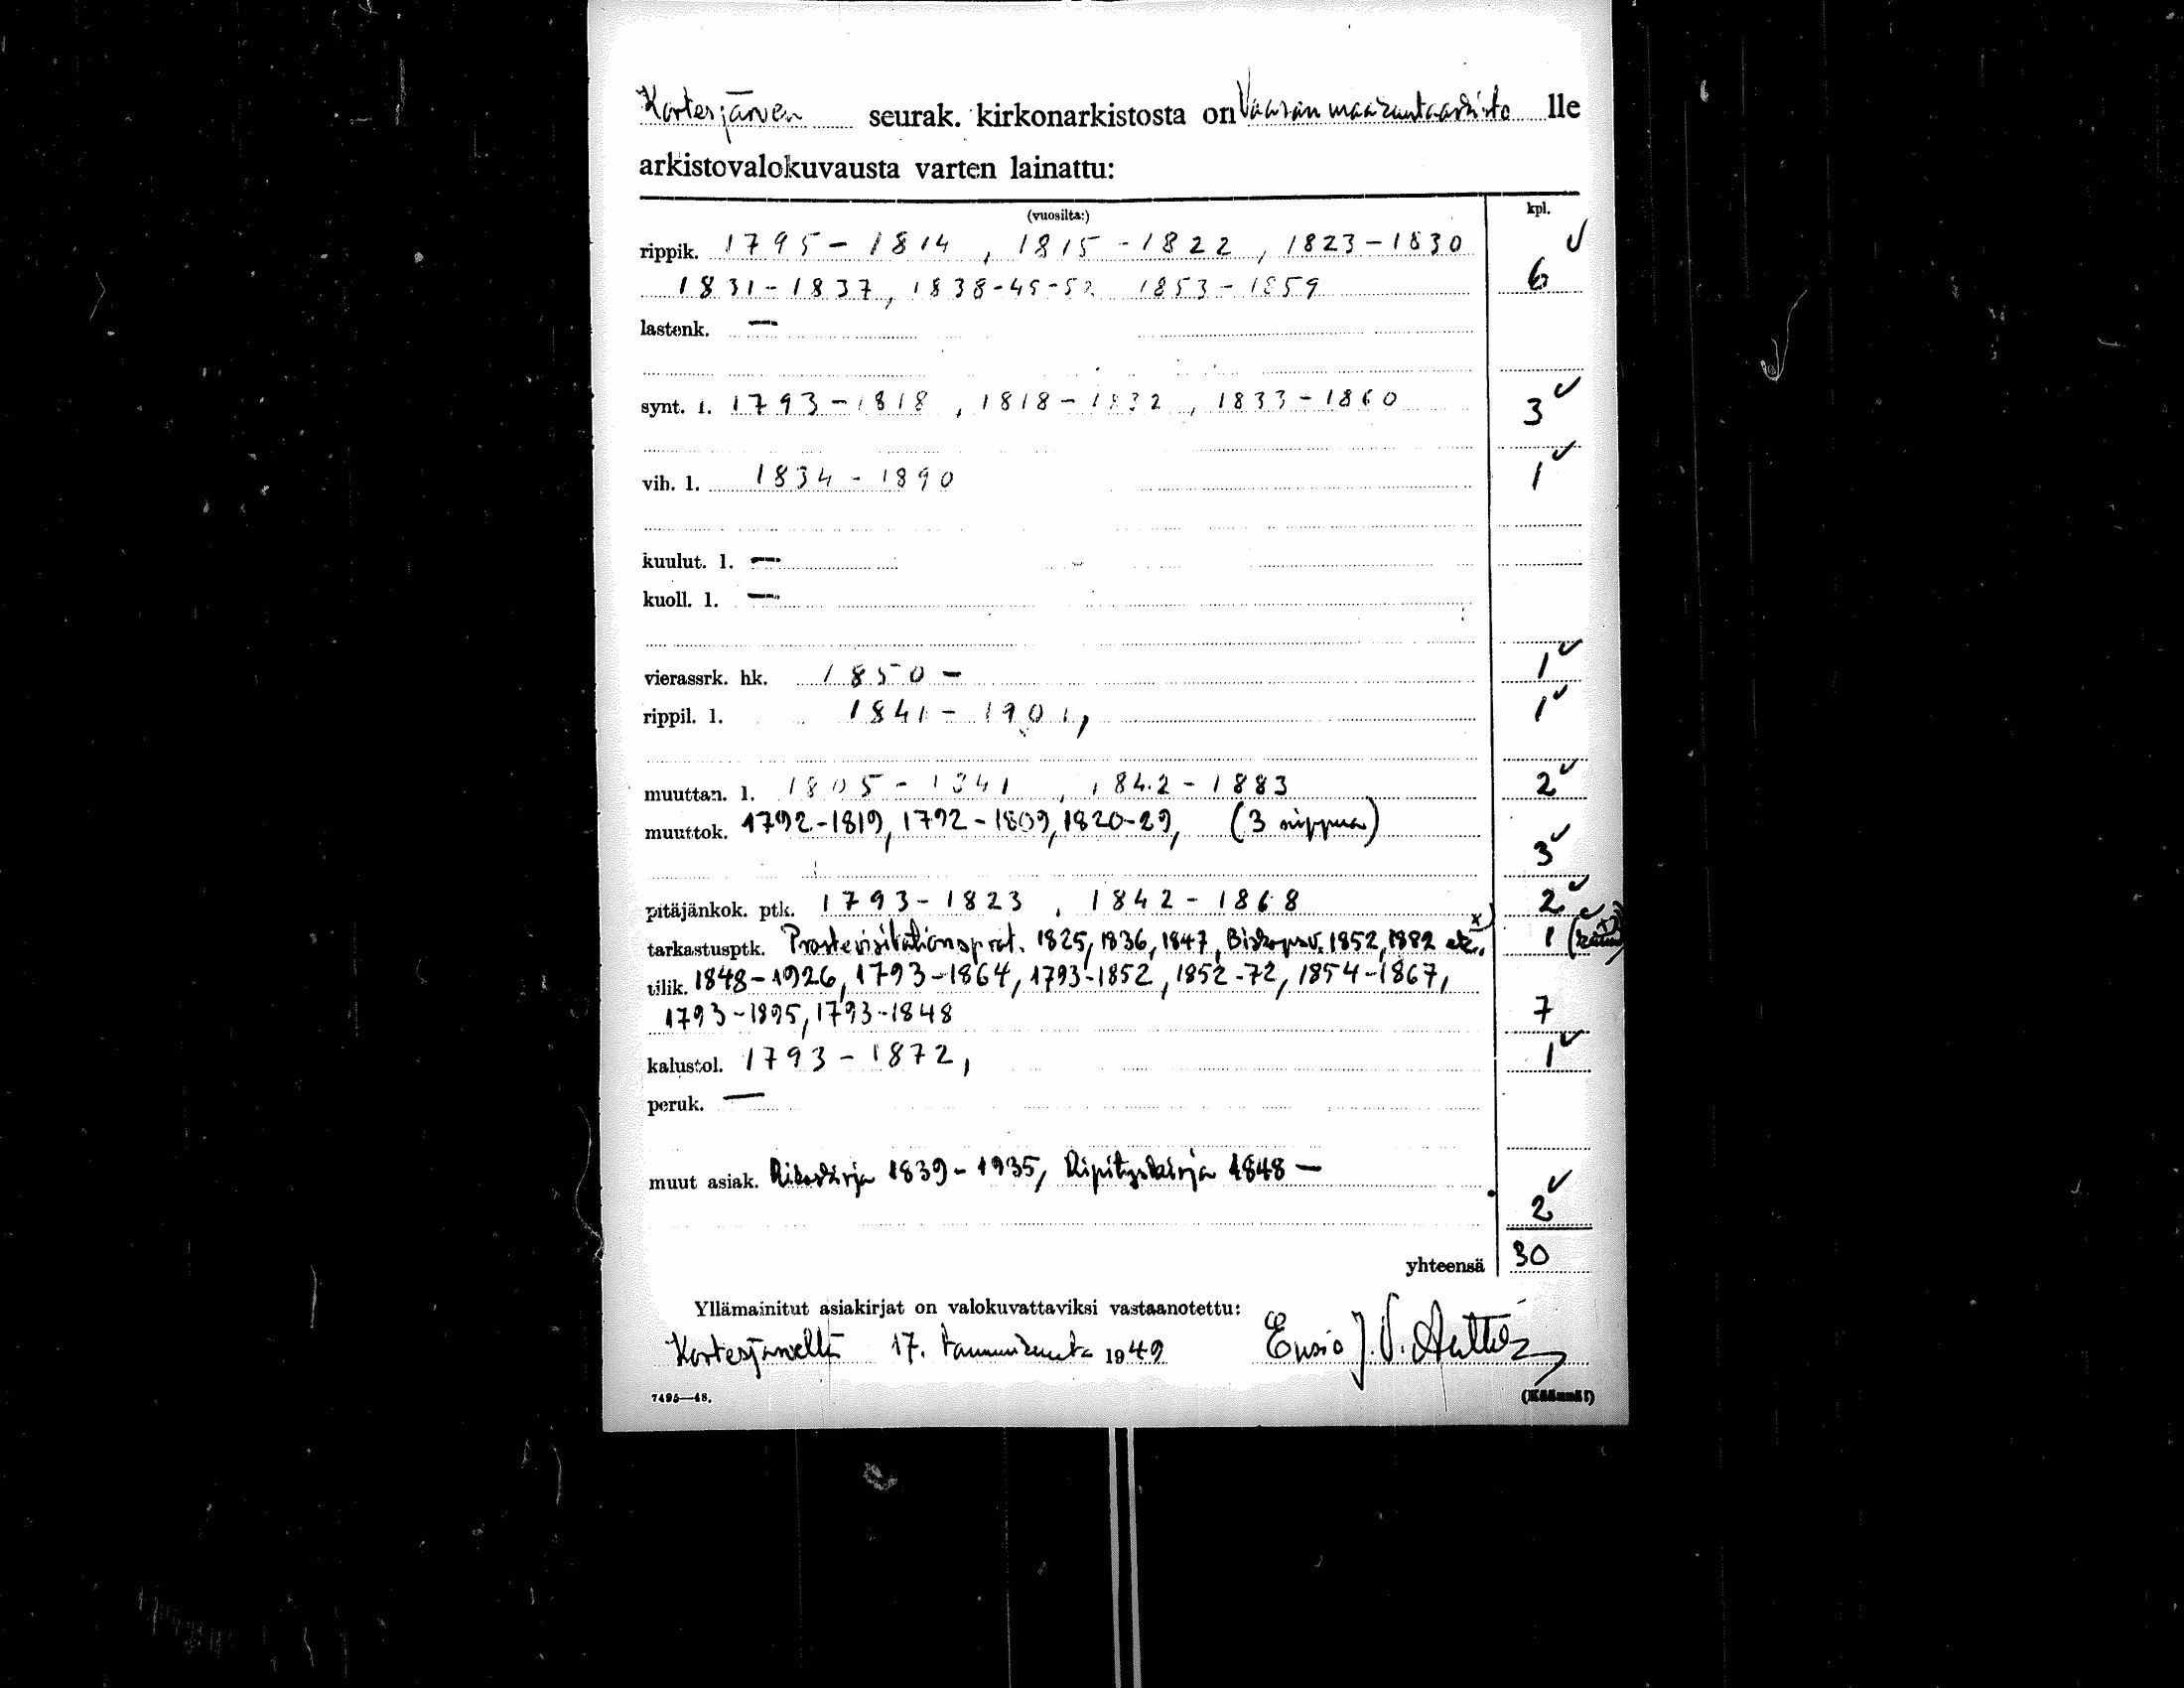 Kortesjärven seurak. kirkonarkistosta on Vaasan maakuntaarkisto lle
arkistovalokuvausta varten lainattu:
(vuosilta:) kpl.
rippik. 1795 - 1814, 1815 - 1822, 1823 - 1830
1831 - 1837, 1838-45-52 1853 - 1859 6
lastenk. —
synt. l. 1793 - 1818, 1818 - 1832, 1833 - 1860 3
vih. l. 1834 - 1890 1
kuulut. l. —
kuoll. l. —
vierassrk. hk. 1850 - 1
rippil. l. 1841 - 1901, 1
muuttan. l. 1805 - 1841, 1842 - 1883 2
muuttok. 1792-1819, 1792-1809, 1820-29, (3 nippua) 3
pitäjänkok. ptk. 1793 - 1823, 1842 - 1868 2
tarkastusptk. Prostevisitationsprot. 1825, 1836, 1847, Biskopsv. 1852, 1882 etc. x) 1
tilik. 1848-1926, 1793-1864, 1793-1852, 1852-72, 1854-1867,
1793-1895, 1793-1848 7
kalustol. 1793 - 1872, 1
peruk. —
muut asiak. Rikoskirja 1839 - 1935, Ripityskirja 1848 — 2
yhteensä 30
Yllämainitut asiakirjat on valokuvattaviksi vastaanotettu:
Kortesjärvellä 17. tammikuuta 1949 Ensio J. V.
7495—48. (Käännä!)